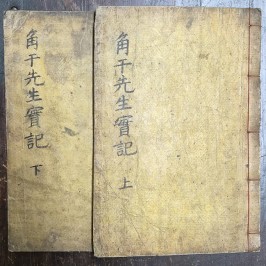 角干先生實記
上
角干先生實記
下